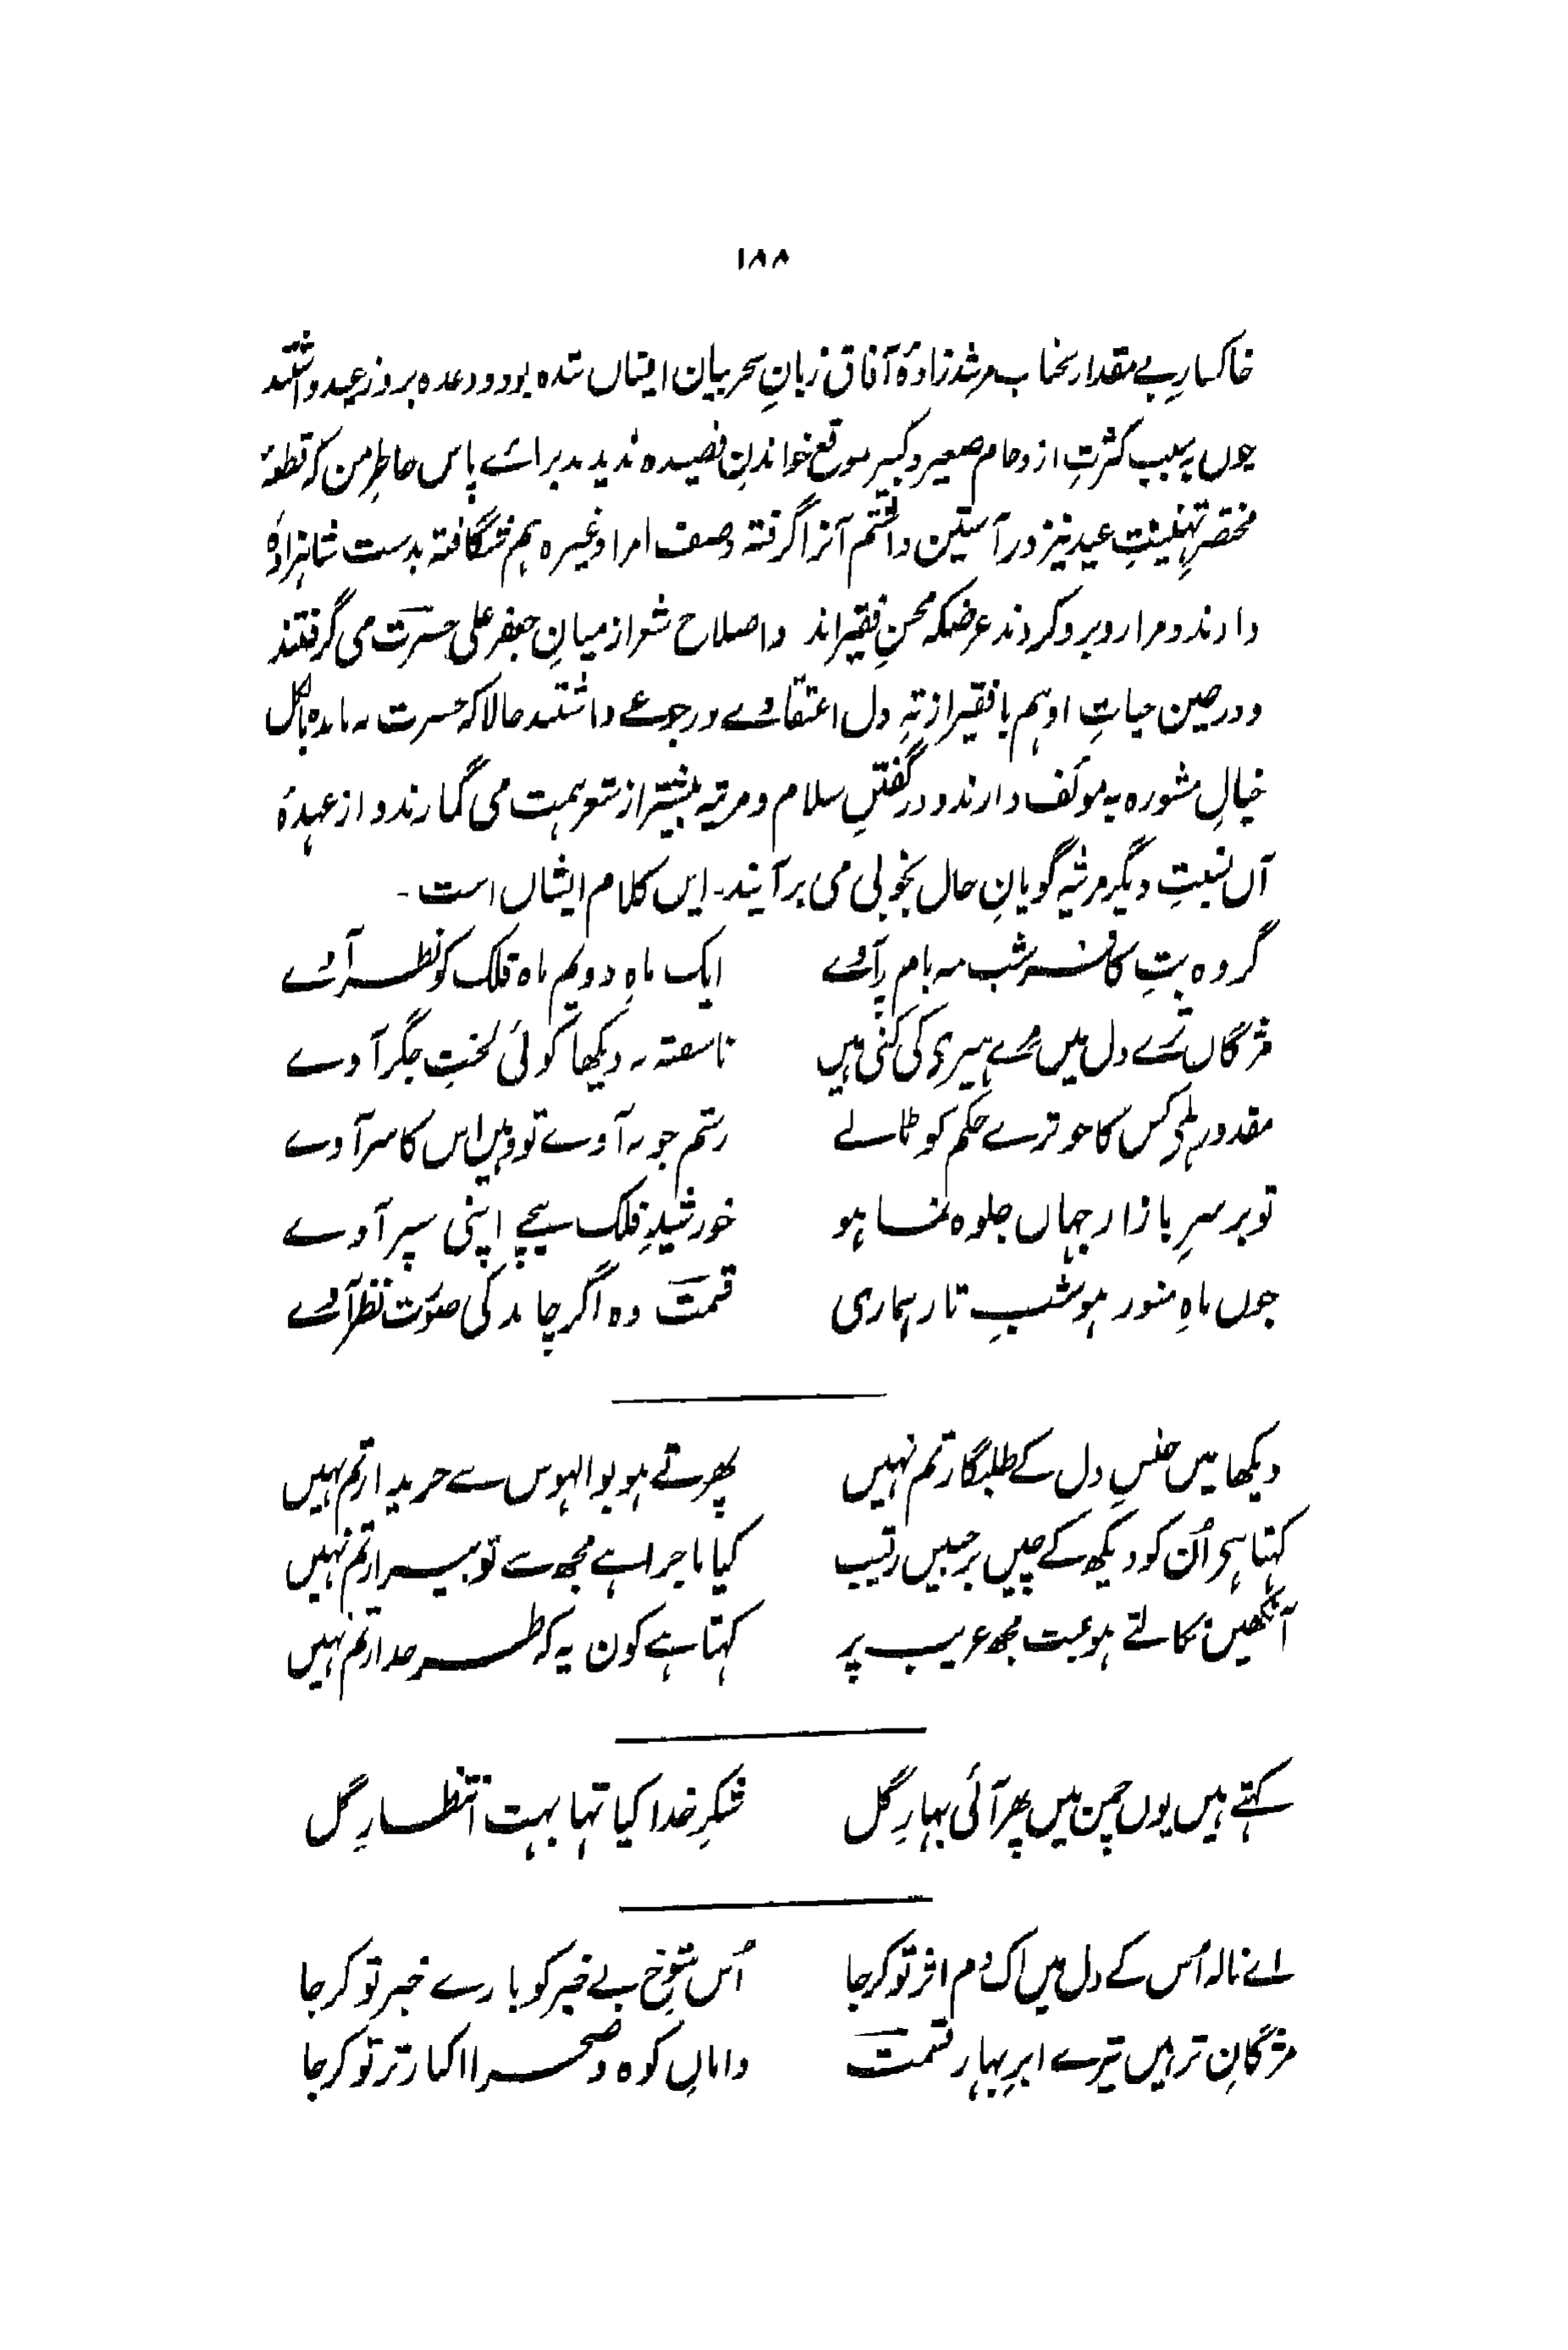 ۱۸۸
خاکسارِ بے مقدار بخاب مرشد زادۂ آفاق زبانِ سحر بیان ایشاں شدہ بود و وعدہ بروز عید داشتند
چوں بسببِ کثرتِ ازدحام صغیر و کبیر موقع خواندنِ قصیدہ ندیدند برائے پاس خاطرِ من کہ قطعۂ
مختصر تہنیتِ عید نیز در آستین داشتم آنرا گرفتہ وصف امرا وغیرہ ہم شگافتہ بدست شاہزادہ
دادند و مرا روبرو کردند غرضکہ محسنِ فقیر اند و اصلاح شعر از میانِ جعفر علی حسرت می گرفتند
و در عینِ حیاتِ او ہم با فقیر از تہِ دل اعتقادے و رجوعے داشتند حالا کہ حسرت نہ ماندہ بالکل
خیالِ مشورہ بہ مولّف دارند و در گفتنِ سلام و مرثیہ بیشتر از شعر ہمت می گمارند و از عہدۂ
آں نسبتِ دیگر مرثیہ گویانِ حال بخوبی می برآیند۔ ایں کلام ایشاں است۔
گر وہ بتِ کافر شب مہ بام پر آوے ایک ماہِ دویم ماہ فلک کو نظر آوے
مژگاں ترے دل میں مرے ہیری کی کنی ہیں ناسفتہ نہ دیکھا کوئی لختِ جگر آوے
مقدور ہے کس کا جو ترے حکم کو ٹالے رستم جو نہ آوے تو وہیں اس کا سر آوے
تو برسرِ بازار جہاں جلوہ نما ہو خورشیدِ فلک بیچے اپنی سپر آوے
جوں ماہِ منور ہو شبِ تار ہماری قسمت وہ اگر چاند کی صورت نظر آوے
دیکھا میں جنسِ دل کے طلبگار تم نہیں پھرتے ہو بوالہوس سے خریدار تم نہیں
کہتا ہے اُن کو دیکھ کے چیں برجبیں رقیب کیا ماجرا ہے مجھ سے تو بیزار تم نہیں
آنکھیں نکالتے ہو عبث مجھ غریب پر کہتا ہے کون یہ کہ طرحدار تم نہیں
کہتے ہیں یوں چمن میں پھر آئی بہارِ گل شکرِ خدا کیا تہا بہت انتظارِ گل
اے نالہ اُس کے دل میں اک دم اثر تو کر جا اُس شوخِ بے خبر کو بارے خبر تو کر جا
مژگانِ تر ہیں تیرے ابرِ بہار قسمت دامانِ کوہ و صحرا اکبار تر تو کر جا